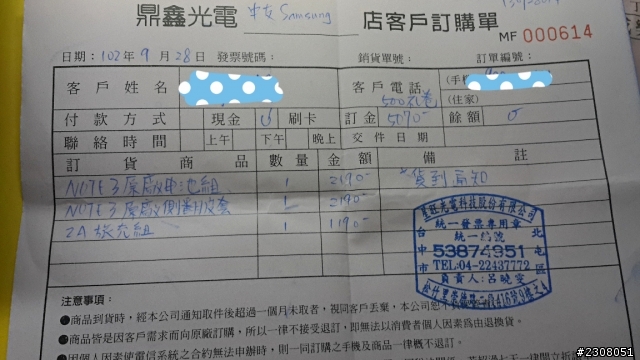 鼎鑫光電 中友 Samsung 店客戶訂購單
MF 000614
日期：102年 9月 28日 發票號碼： 銷貨單號： 訂單編號：
客戶姓名 客戶電話 (手機)
500禮卷 (住家)
付款方式 現金 刷卡 訂金 5070- 餘額 0
聯絡時間 上午 下午 晚上 交件日期
訂貨商品 數量 金額 備註
NOTE 3 原廠電池組 1 2190- 貨到通知
NOTE 3 原廠側翻皮套 1 2190-
2A 旅充組 1 1190-
光電科技股份有限公司
統一發票專用章
統一編號
53874951
TEL:04-22437772
負責人:呂曉雯
台中市
北屯區
注意事項：
●商品到貨時，經本公司通知取件後超過一個月未取者，視同客戶丟棄，本公司恕不
●商品皆是因客戶需求而向原廠訂購，所以一律不接受退訂，即無法以消費者個人因素為由退換貨。
●因個人因素使電信系統之合約無法申辦時，則一同訂購之手機及商品一律概不退訂。
#2308051